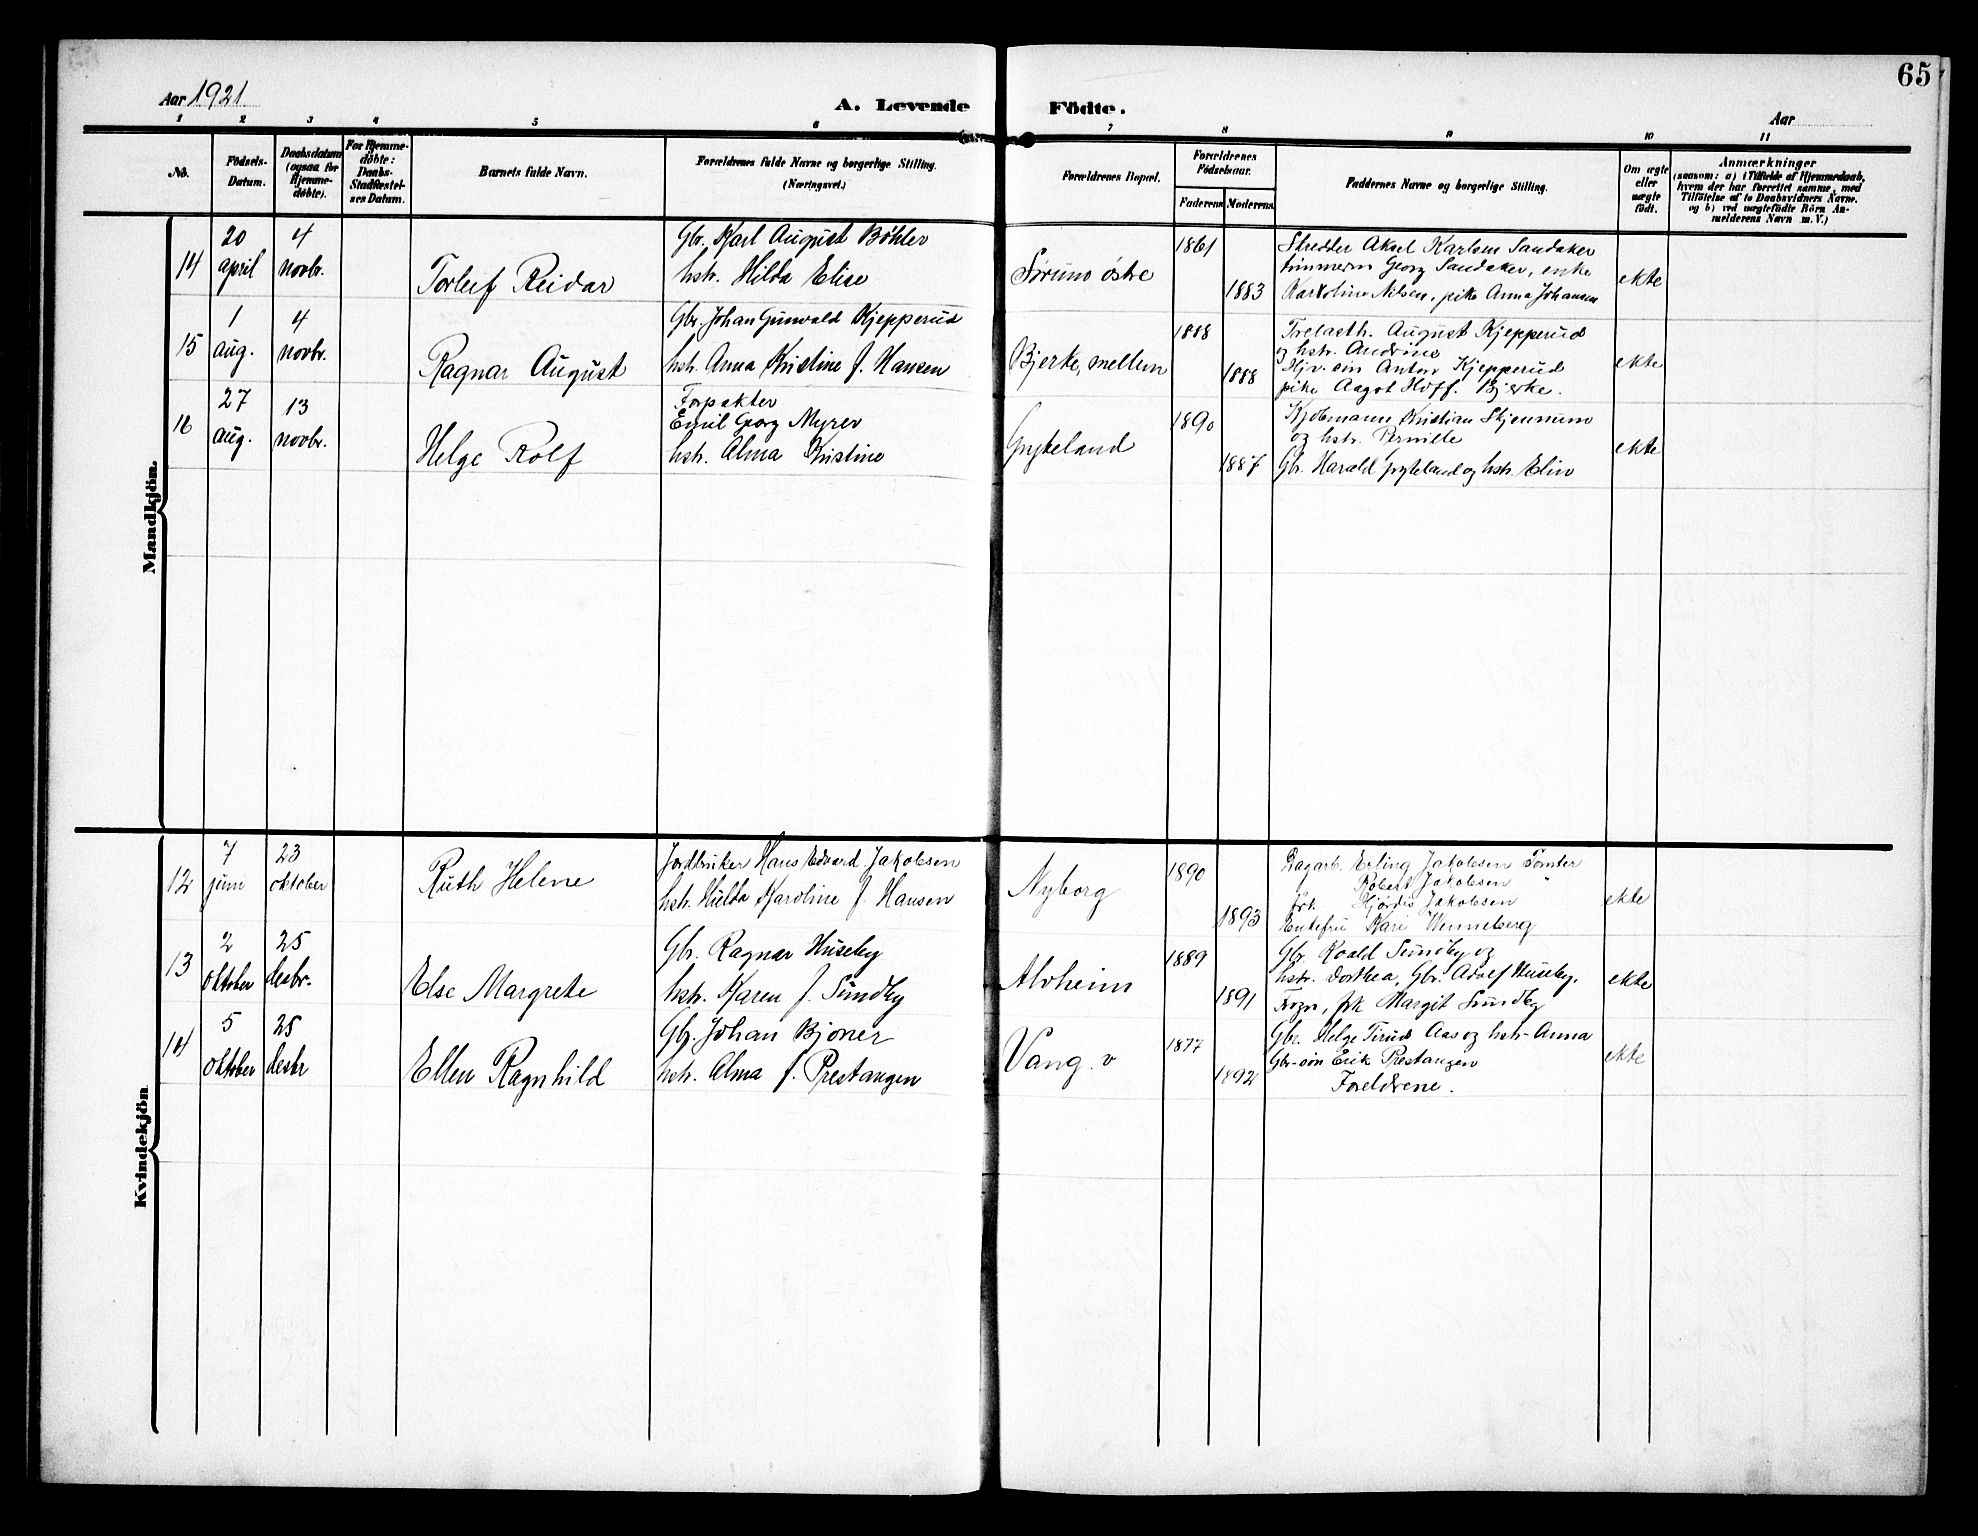 65
Aar 1921
A. Levende Födte.
Aar
1 2 3 4 5 6 7 8 9 10 11
No.
Födsels-
Datum.
Daabsdatum
(ogsaa for
Hjemme-
döbte).
For Hjemme-
döbte:
Daabs-
Stadfæstel-
ses Datum.
Barnets fulde Navn.
Forældrenes fulde Navne og borgerlige Stilling.
(Næringsvei.)
Forældrenes Bopæl.
Forældrenes
Födselsaar.
Faderens Moderens
Faddernes Navne og borgerlige Stilling.
Om ægte
eller
uægte
født.
Anmærkninger
(saasom: a) i Tilfælde af Hjemmedaab,
hvem der har forrettet samme, med
Tilföielse af to Daabsvidners Navne.
og b) ved uægtefödte Börn An-
melderens Navn m. V.)
Mandkjön.
14
20
april
4
novbr.
Torleif Reidar
Gbr. Karl August Bøhler
hstr. Hilda Elise
Søruno østre
1861
1883
Skredder Aksel Karlsen Sandaker
tømmerm Georg Sandaker, enke
Karoline Nilsen, pike Anna Johansen
ekte
15
1
aug.
4
novbr.
Ragnar August
Gbr. Johan Gunvald Kjepperud
hstr. Anna Kristine f. Hansen
Bjerke, mellem
1888
1888
Trelasth. August Kjepperud
og hstr. Andrine
Hjv. søn Anton Kjepperud
pike Aagot Hoff. Bjerke.
ekte
16
27
aug.
13
novbr.
Helge Rolf
Forpakter
Emil Georg Myrer
hstr. Alma Kristine
Gryteland
1890
1887
Kjøbmann Kristian Skjennum
og hstr. Pernille
Gbr. Harald Gryteland og hstr. Elin
ekte
Kvindekjön
12
7
juni
23
oktober
Ruth Helene
Jordbruker Hans Edvard Jakobsen
hstr. Hulda Karoline f. Hansen
Nyborg
1890
1893
Dagarb. Erling Jakobsen Tomter
Robert Jakobsen "
frk. Hjørdis Jakobsen
Enkefru Kari Wenneberg
ekte
13
2
oktober
25
desbr.
Else Margrete
Gbr. Ragnar Huseby
hstr. Karen f. Sundby
Alvheim
1889
1891
Gbr. Roald Sundby og
hstr. Dorthea, Gbr. Adolf Huseby,
Frogn, frk Margit Sundby
ekte
14
5
oktober
25
desbr
Ellen Ragnhild
Gbr. Johan Bjoner
hstr. Alma f. Prestangen
Vang. v
1877
1892
Gbr. Helge Tirud Aas og hstr Anna
Gbr-søn Erik Prestangen
Foreldrene.
ekte